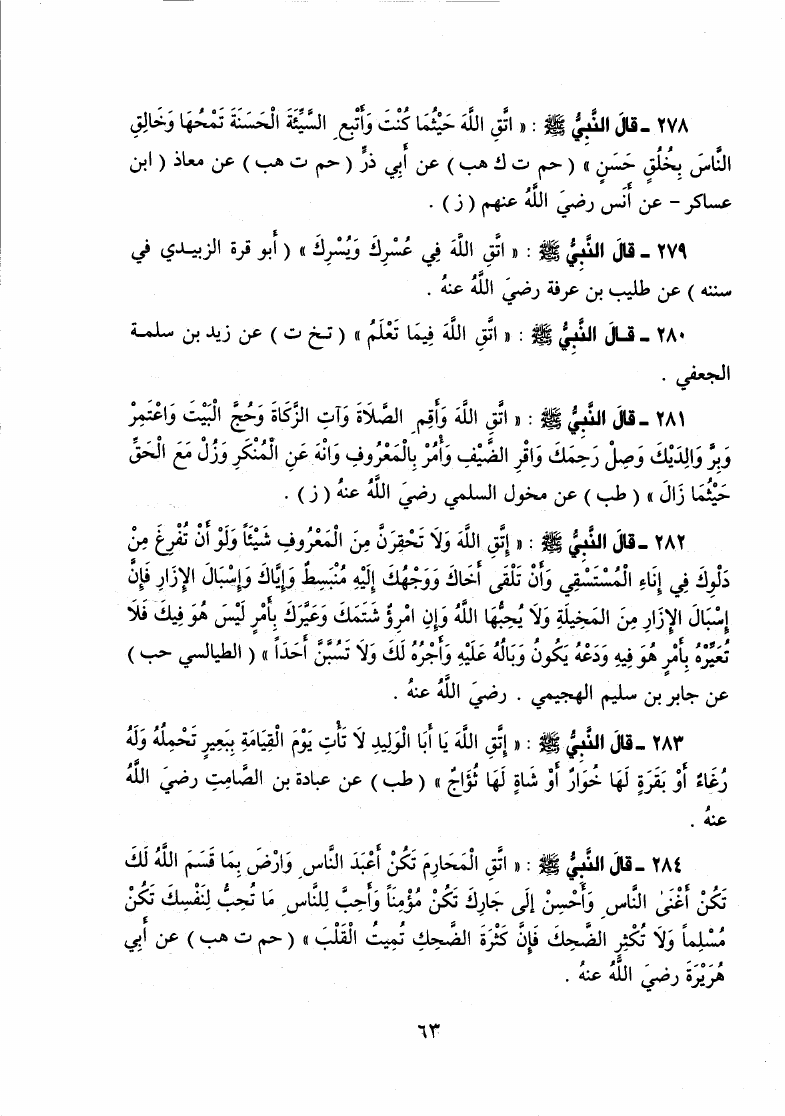 ٢٧٨ - قَالَ النَّبِيُّ ﷺ : « اتَّقِ اللَّهَ حَيْثُمَا كُنْتَ وَأَتْبِعِ السَّيِّئَةَ الْحَسَنَةَ تَمْحُهَا وَخَالِقِ
النَّاسَ بِخُلُقٍ حَسَنٍ » ( حم ت ك هب ) عن أَبِي ذرٍّ ( حم ت هب ) عن معاذ ( ابن
عساكر - عن أَنَس رضيَ اللَّهُ عنهم ( ز ) .
٢٧٩ - قَالَ النَّبِيُّ ﷺ : « اتَّقِ اللَّهَ فِي عُسْرِكَ وَيُسْرِكَ » ( أَبو قرة الزبيدي في
سننه ) عن طليب بن عرفة رضيَ اللَّهُ عنهُ .
٢٨٠ - قَالَ النَّبِيُّ ﷺ : « اتَّقِ اللَّهَ فِيمَا تَعْلَمُ » ( تخ ت ) عن زيد بن سلمة
الجعفي .
٢٨١ - قَالَ النَّبِيُّ ﷺ : « اتَّقِ اللَّهَ وَأَقِمِ الصَّلَاةَ وَآتِ الزَّكَاةَ وَحُجَّ الْبَيْتَ وَاعْتَمِرْ
وَبِرَّ وَالِدَيْكَ وَصِلْ رَحِمَكَ وَاقْرِ الضَّيْفَ وَأْمُرْ بِالْمَعْرُوفِ وَانْهَ عَنِ الْمُنْكَرِ وَزُلْ مَعَ الْحَقِّ
حَيْثُمَا زَالَ » ( طب ) عن مخول السلمي رضيَ اللَّهُ عنهُ ( ز ) .
٢٨٢ - قَالَ النَّبِيُّ ﷺ : « إِتَّقِ اللَّهَ وَلَا تَحْقِرَنَّ مِنَ الْمَعْرُوفِ شَيْئاً وَلَوْ أَنْ تُفْرِغَ مِنْ
دَلْوِكَ فِي إِنَاءِ الْمُسْتَسْقِي وَأَنْ تَلْقَى أَخَاكَ وَوَجْهُكَ إِلَيْهِ مُنْبَسِطٌ وَإِيَّاكَ وَإِسْبَالَ الإِزَارِ فَإِنَّ
إِسْبَالَ الإِزَارِ مِنَ المَخِيلَةِ وَلَا يُحِبُّهَا اللَّهُ وَإِنِ امْرِؤٌ شَتَمَكَ وَعَيَّرَكَ بِأَمْرٍ لَيْسَ هُوَ فِيكَ فَلَا
تُعَيِّرْهُ بِأَمْرٍ هُوَ فِيهِ وَدَعْهُ يَكُونُ وَبَالُهُ عَلَيْهِ وَأَجْرُهُ لَكَ وَلَا تَسُبَّنَّ أَحَداً » ( الطيالسي حب )
عن جابر بن سليم الهجيمي . رضيَ اللَّهُ عنهُ .
٢٨٣ - قَالَ النَّبِيُّ ﷺ : « إِتَّقِ اللَّهَ يَا أَبَا الْوَلِيدِ لَا تَأْتِ يَوْمَ القِيَامَةِ بِبَعِيرٍ تَحْمِلُهُ وَلَهُ
رُغَاءٌ أَوْ بَقَرَةٍ لَهَا خُوَارٌ أَوْ شَاةٍ لَهَا ثُؤَاجٌ » ( طب ) عن عبادة بن الصَّامِتِ رضيَ اللَّهُ
عنهُ .
٢٨٤ - قَالَ النَّبِيُّ ﷺ : « اتَّقِ الْمَحَارِمَ تَكُنْ أَعْبَدَ النَّاسِ وَارْضَ بِمَا قَسَمَ اللَّهُ لَكَ
تَكُنْ أَغْنَى النَّاسِ وَأَحْسِنْ إِلَى جَارِكَ تَكُنْ مُؤْمِناً وَأَحِبَّ لِلنَّاسِ مَا تُحِبُّ لِنَفْسِكَ تَكُنْ
مُسْلِماً وَلَا تُكْثِرِ الضَّحِكَ فَإِنَّ كَثْرَةَ الضَّحِكِ تُمِيتُ الْقَلْبَ » ( حم ت هب ) عن أَبِي
هُرَيْرَةَ رضيَ اللَّهُ عنهُ .
٦٣